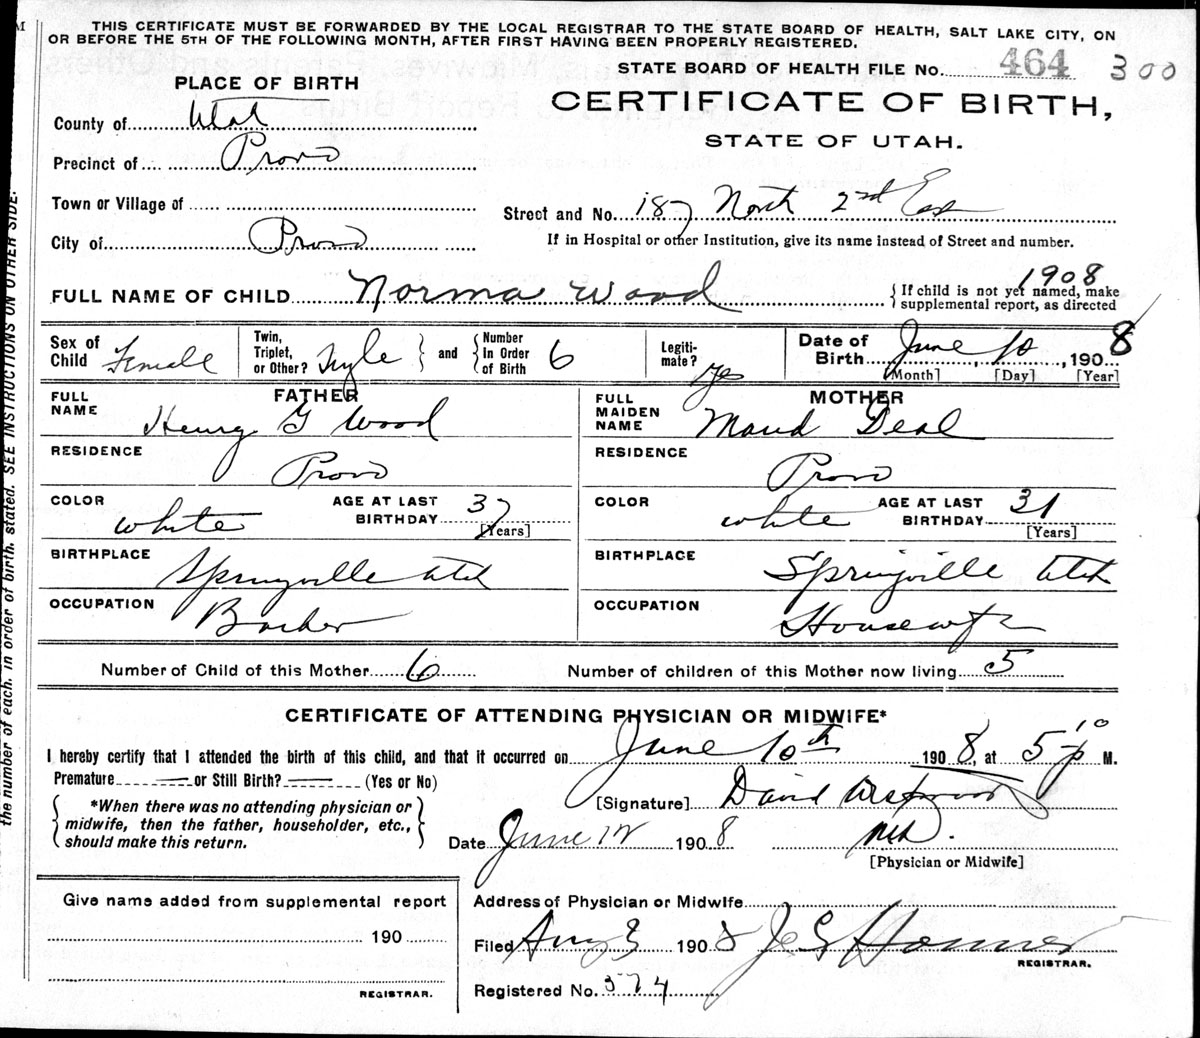 THIS CERTIFICATE MUST BE FORWARDED BY THE LOCAL REGISTRAR TO THE STATE BOARD OF HEALTH, SALT LAKE CITY, ON
OR BEFORE THE 5TH OF THE FOLLOWING MONTH, AFTER FIRST HAVING BEEN PROPERLY REGISTERED.
STATE BOARD OF HEALTH FILE No. 464 300
PLACE OF BIRTH
CERTIFICATE OF BIRTH,
STATE OF UTAH.
County of Utah
Precinct of Provo
Town or Village of
Street and No. 187 North 2nd East
City of Provo
If in Hospital or other Institution, give its name instead of Street and number.
1908
FULL NAME OF CHILD Norma Wood
{ If child is not yet named, make
supplemental report, as directed
Sex of Child Female
Twin, Triplet, or Other? } and { Number In Order of Birth 6
Legiti-mate? yes
Date of Birth June 10, 1908 8
[Month] [Day] [Year]
FATHER
FULL NAME Henry G Wood
MOTHER
FULL MAIDEN NAME Maud Deal
RESIDENCE Provo
RESIDENCE Provo
COLOR white AGE AT LAST BIRTHDAY 37 [Years]
COLOR white AGE AT LAST BIRTHDAY 31 [Years]
BIRTHPLACE Springville Utah
BIRTHPLACE Springville Utah
OCCUPATION Barber
OCCUPATION Housewife
Number of Child of this Mother 6 Number of children of this Mother now living 5
CERTIFICATE OF ATTENDING PHYSICIAN OR MIDWIFE*
I hereby certify that I attended the birth of this child, and that it occurred on June 10th 1908, at 5 10 p M.
Premature or Still Birth? (Yes or No)
[Signature] David
*When there was no attending physician or
midwife, then the father, householder, etc.,
should make this return.
Date June 12 1908 MD.
[Physician or Midwife]
Give name added from supplemental report
190
REGISTRAR.
Address of Physician or Midwife
Filed Aug 3 1908
REGISTRAR.
Registered No. 374
the number of each, in order of birth, stated. SEE INSTRUCTIONS ON OTHER SIDE.